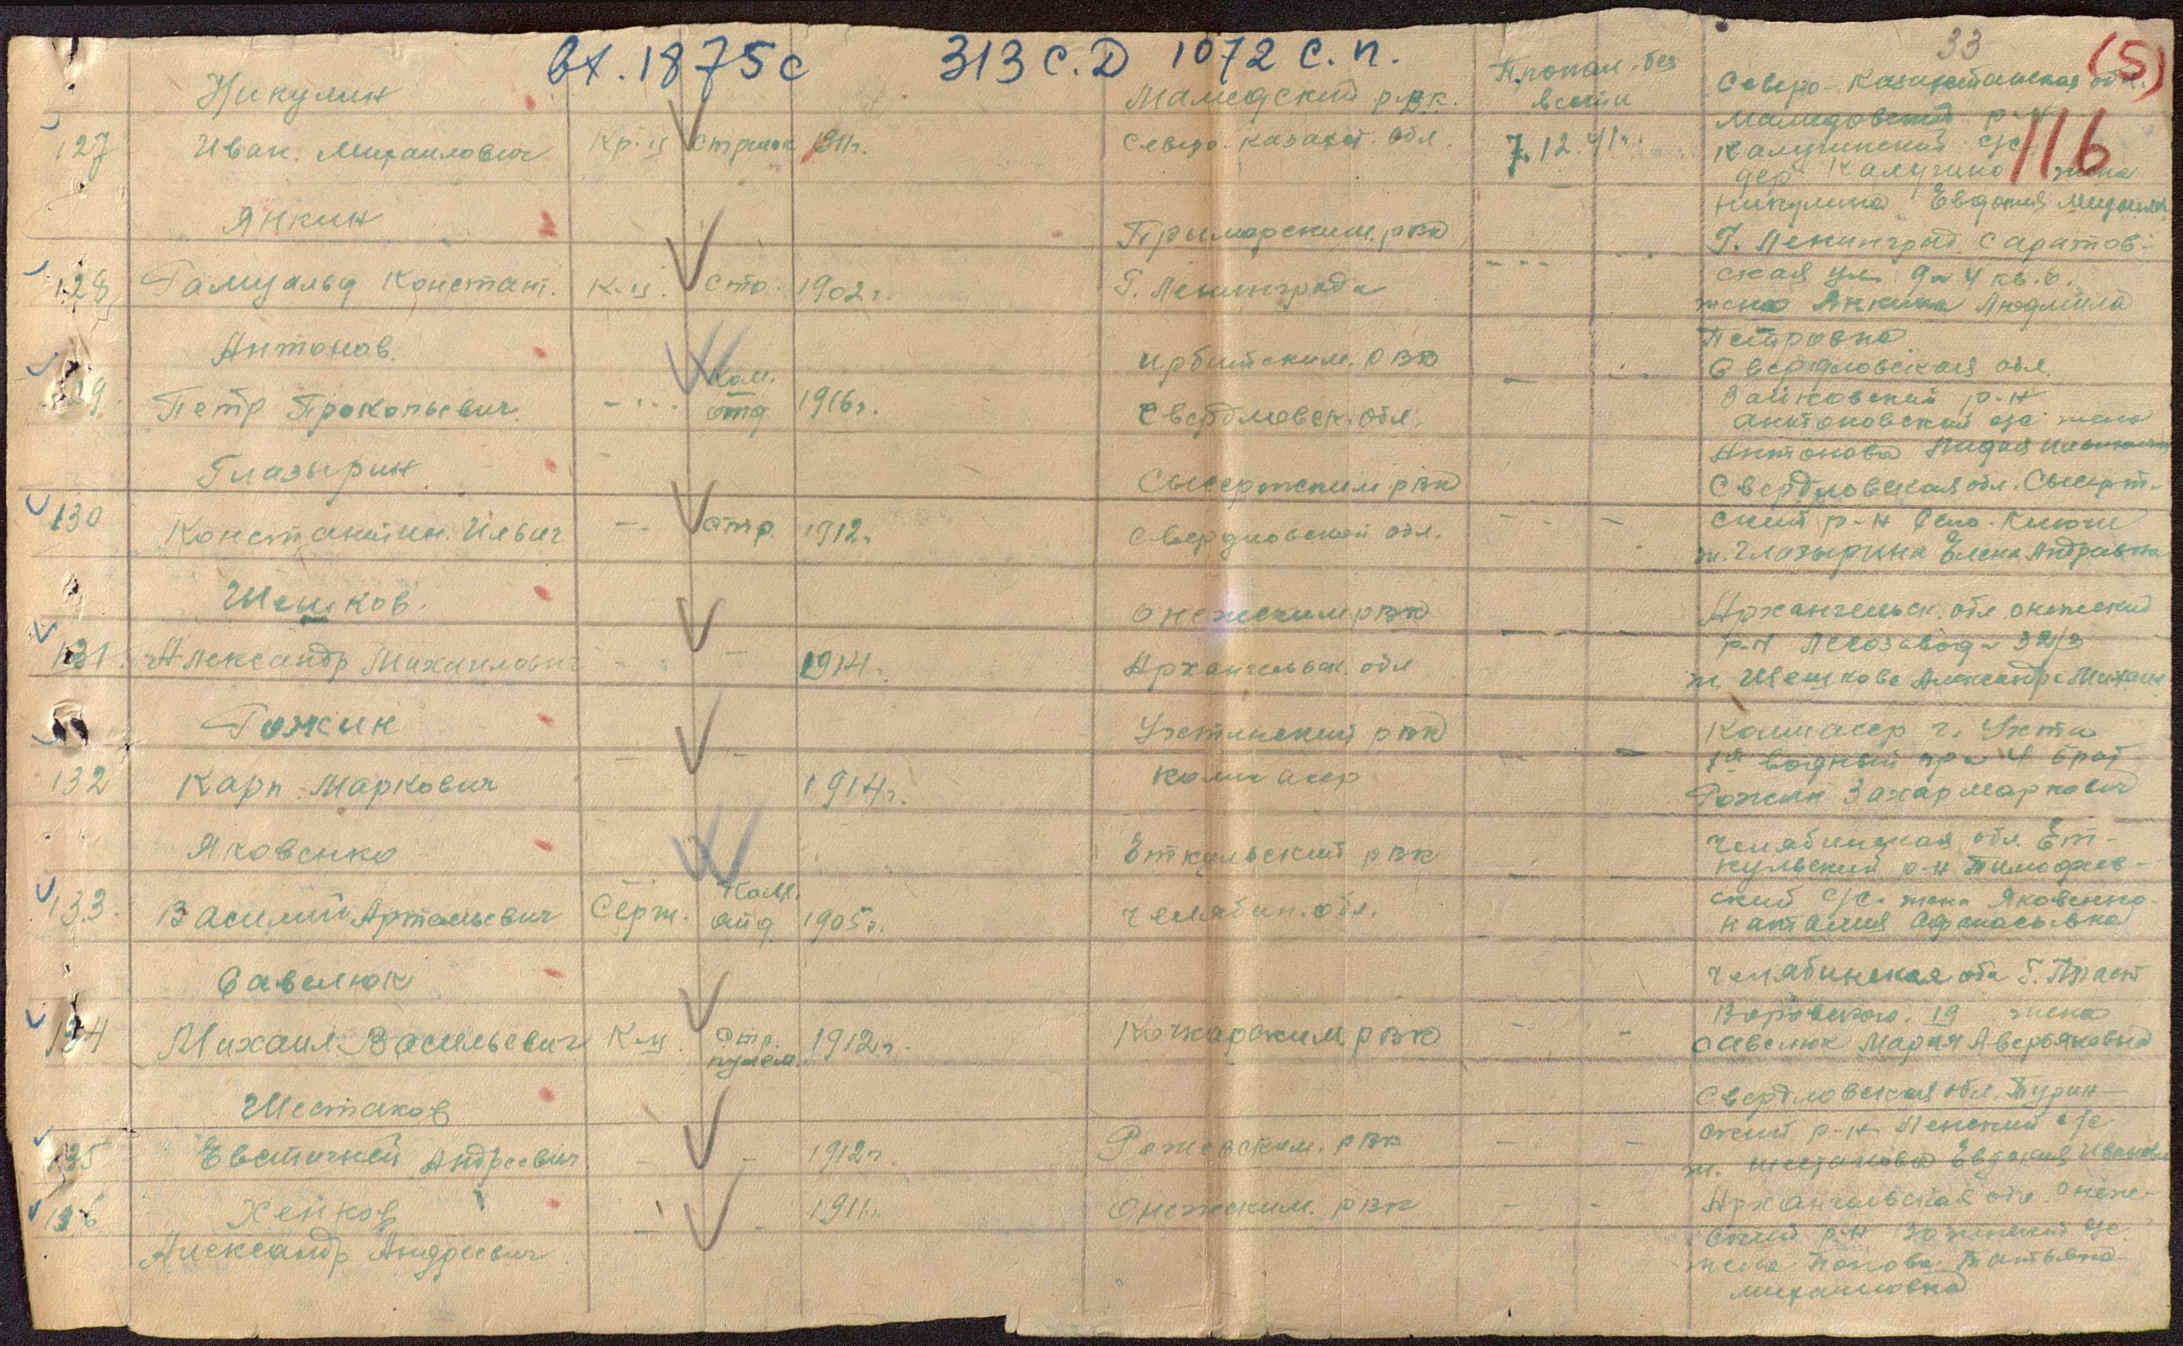 вх. 1875с 313 С.Д 1072 с.п.
33
(5)
116
Никулин
127 Иван. Михайлович Кр-ц Стрелок 1911г.
Мамедский р.в.к.
Северо. казахст. обл.
Пропал. без
вести
7.12.41г.
Северо-Казахстанская обл.
р-н
с/с
дер Калугино жена
Никулина Евдокия
Янкин
128 Ромуальд Констант. К-ц. Стр. 1902г.
Приморским. рвк
Г. Ленинграда
Г. Ленинград. Саратов-
ская ул. д 4 кв. 6.
жена Янкина Людмила
Петровна
Антонов.
129 Петр Прокопьевич - " - Ком. отд 1916г.
Ирбитским. РВК
Свердловск. обл.
Свердловская обл.
Зайковский р-н
Антоновский с/с жена
Антонова Лидия
Глазырин
130 Константин. Ильич - - Стр. 1912г
Сысертским рвк
Свердловской обл. - - -
Свердловская обл. Сысерт-
ский р-н село. Ключи
ж. Глазырина Елена Андреевна
Шешков.
131. Александр Михайлович - - - 1914г.
Онежским рвк
Архангельск. обл
Архангельск. обл Онежский
р-н Лесозавод 32/3
ж. Шешкова Александра Михайл
Рожин
132 Карп. Маркович - - 1914г.
Ухтинский рвк
Коми асср
Коми асср г. Ухта
1й водный пр 4 брат
Рожин Захар Маркович
Яковенко
133. Василий Артемьевич Серж. Ком. отд 1905г.
Еткульский рвк
Челябин. обл.
Челябинская обл. Ет-
кульский р-н Тимофеев-
ский с/с. жена Яковенко
Наталия Афанасьевна
Савелюк
134 Михаил Васильевич К-ц. Стр. пулем. 1912г.
Кочкарским. РВК - -
Челябинская обл Г. Пласт
Воровского. 19 жена
Савелюк Мария Аверьяновна
Шестаков
135 Евстигней Андреевич - - 1912г.
Режевским. рвк - -
Свердловская обл. Турин-
ский р-н Ленский с/с
ж. Шестакова Евдокия Ивановн
136 Хенков - - 1911г.
Александр Андреевич
Онежским. РВК - -
Архангельская обл. Онеж-
ский р-н с/с
жена Попова Татьяна
Михайловна